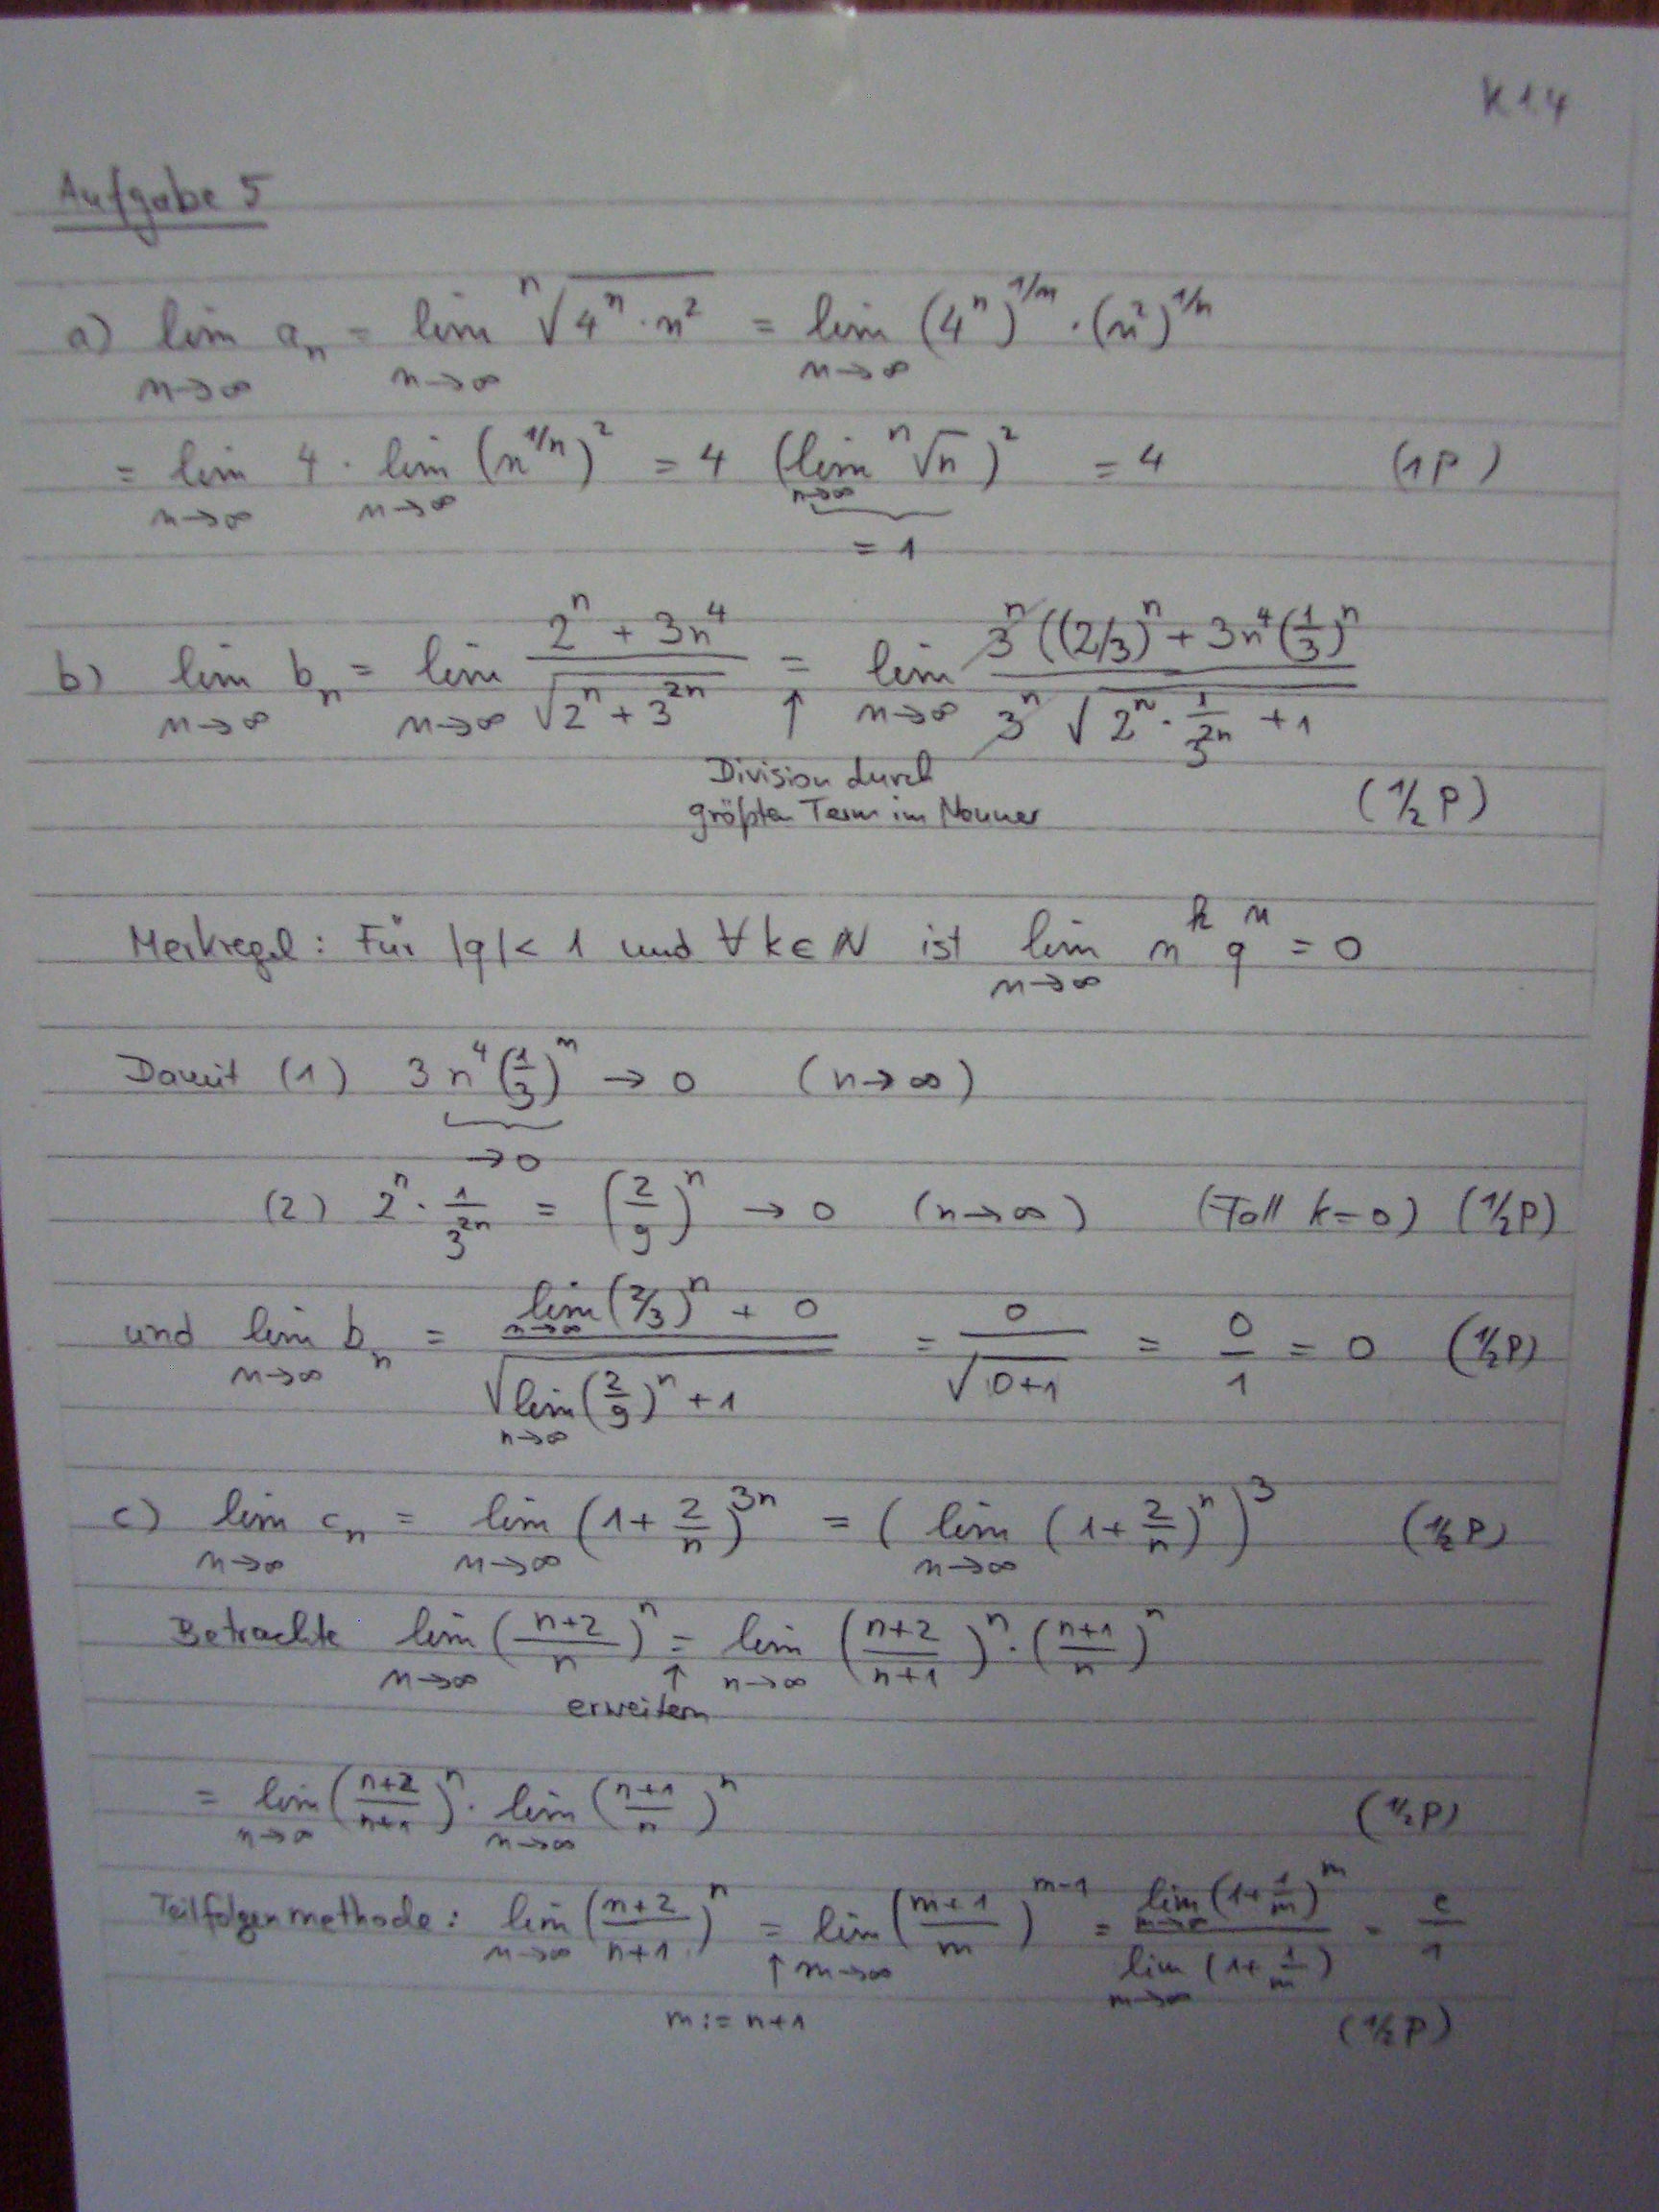 K1.4
Aufgabe 5
a) lim_{n→∞} a_n = lim_{n→∞} ⁿ√(4^n · n^2) = lim_{n→∞} (4^n)^{1/n} · (n^2)^{1/n}
= lim_{n→∞} 4 · lim_{n→∞} (n^{1/n})^2 = 4 (lim_{n→∞} ⁿ√n)^2 = 4 (1P)
= 1
b) lim_{n→∞} b_n = lim_{n→∞} (2^n + 3n^4)/√(2^n + 3^{2n}) = lim_{n→∞} 3^n((2/3)^n + 3n^4(1/3)^n / 3^n √(2^n · 1/3^{2n} + 1)
↑
Division durch
größten Term im Nenner (1/2 P)
Merkregel: Für |q| < 1 und ∀ k ∈ N ist lim_{n→∞} n^k q^n = 0
Damit (1) 3 n^4 (1/3)^n → 0 (n→∞)
→ 0
(2) 2^n · 1/3^{2n} = (2/9)^n → 0 (n→∞) (Fall k=0) (1/2 P)
und lim_{n→∞} b_n = (lim_{n→∞} (2/3)^n + 0)/√(lim_{n→∞} (2/9)^n + 1) = 0/√(0+1) = 0/1 = 0 (1/2 P)
c) lim_{n→∞} c_n = lim_{n→∞} (1 + 2/n)^{3n} = (lim_{n→∞} (1 + 2/n)^n)^3 (1/2 P)
Betrachte lim_{n→∞} ((n+2)/n)^n = lim_{n→∞} ((n+2)/(n+1))^n · ((n+1)/n)^n
↑
erweitern
= lim_{n→∞} ((n+2)/(n+1))^n · lim_{n→∞} ((n+1)/n)^n (1/2 P)
Teilfolgenmethode: lim_{n→∞} ((n+2)/(n+1))^n = lim_{m→∞} ((m+1)/m)^{m-1} = lim_{m→∞} (1 + 1/m)^m / lim_{m→∞} (1 + 1/m) = e/1
↑
m := n+1 (1/2 P)